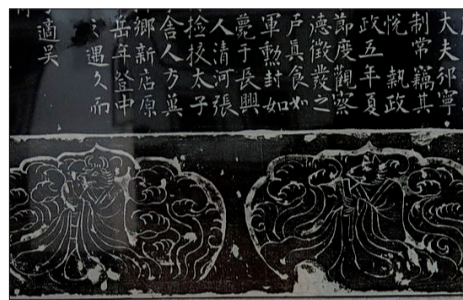 大夫邠寧
制常藉其
悅 執政
政五年夏
節度觀察
德徵發之
戶真食如
軍勳封如
薨于長興
人清河張
撿校太子
舍人方
鄉新店原
岳年登中
遇久而
適吳